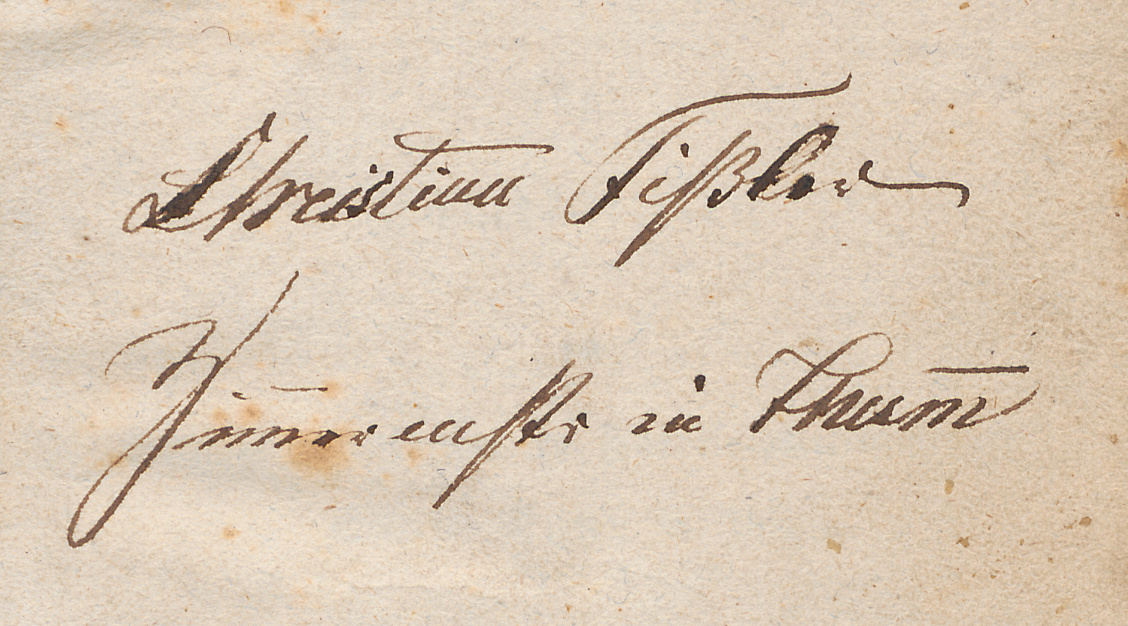 Christian Tißler
Zim̅ermstr in Thum̅